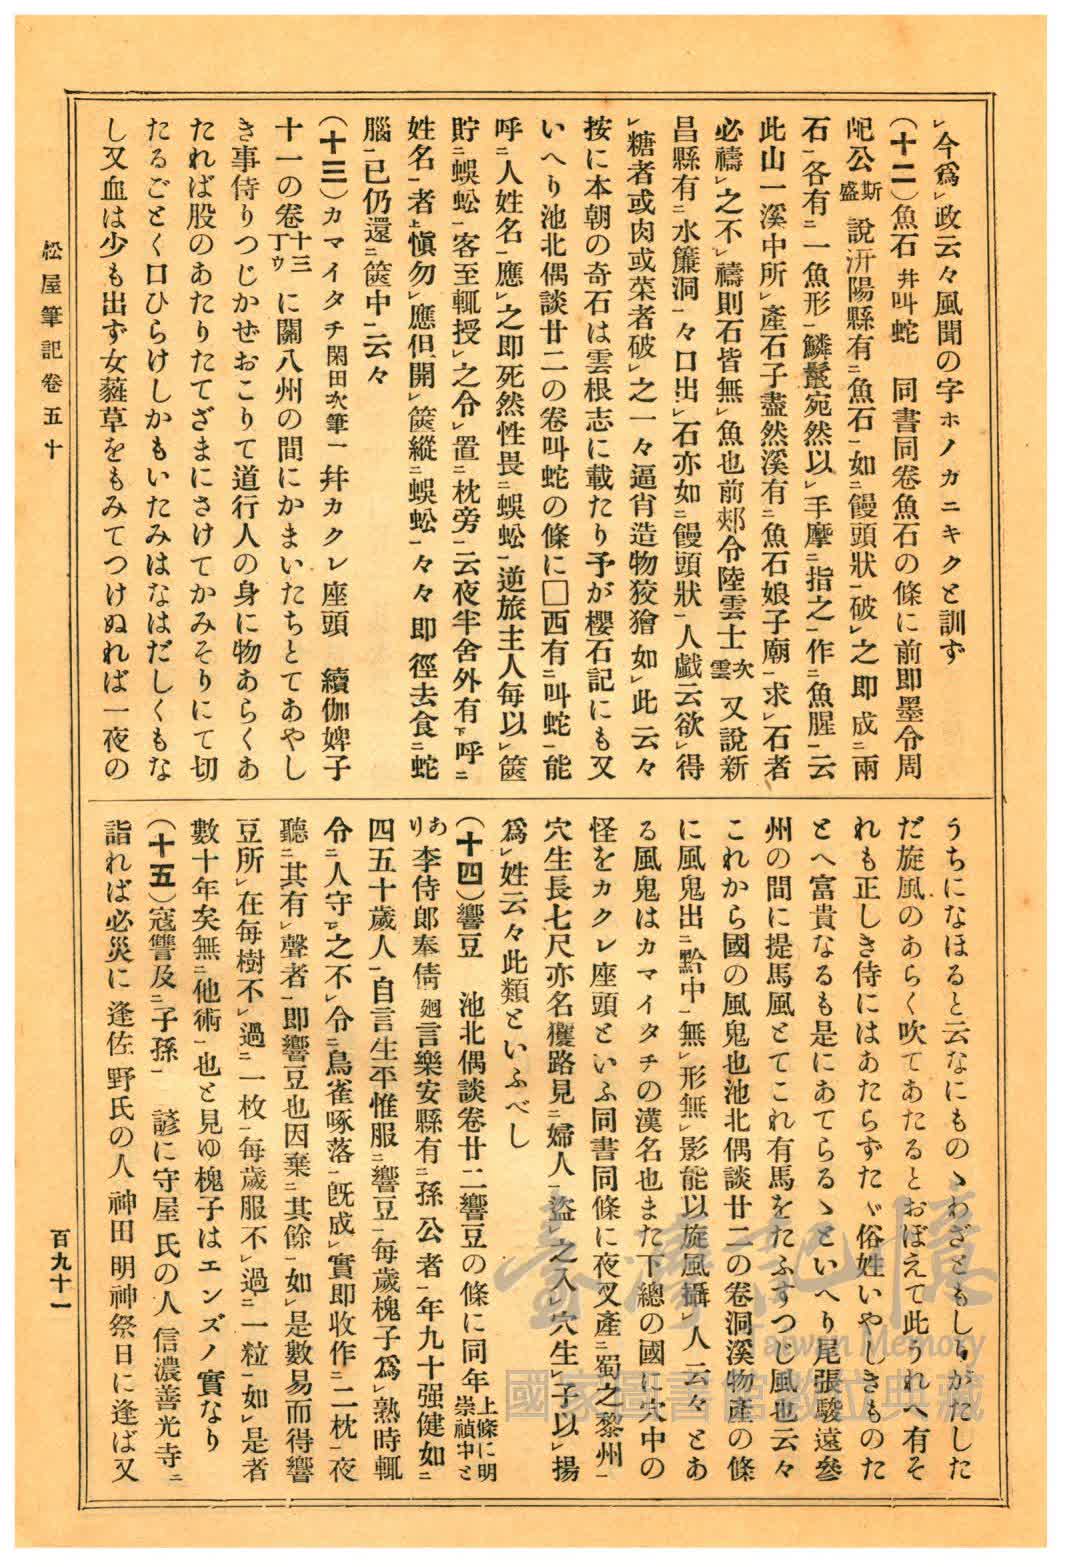 レ今爲レ政云々風聞の字ホノカニキクと訓ず
(十二)魚石并叫蛇　同書同卷魚石の條に前卽墨令周
公斯盛說汧陽縣有二魚石一如二饅頭狀一破レ之卽成二兩
石一各有二一魚形一鱗鬣宛然以レ手摩二指之一作二魚腥一云
此山一溪中所レ產石子盡然溪有二魚石娘子廟一求レ石者
必禱レ之不レ禱則石皆無レ魚也前郟令陸雲士次雲又說新
昌縣有二水簾洞一々口出レ石亦如二饅頭狀一人戱云欲レ得
レ糖者或肉或菜者破レ之一々逼肖造物狡獪如レ此云々
按に本朝の奇石は雲根志に載たり予が櫻石記にも又
いへり池北偶談廿二の卷叫蛇の條に□西有二叫蛇一能
呼二人姓名一應レ之卽死然性畏二蜈蚣一逆旅主人每以レ篋
貯二蜈蚣一客至輒授レ之令レ置二枕旁一云夜半舍外有下呼二
姓名一者上愼勿レ應但開レ篋縱二蜈蚣一々々卽徑去食二蛇
腦一已仍還二篋中一云々
(十三)カマイタチ閑田次筆一幷カクレ座頭　續伽婢子
十一の卷十三丁ゥに關八州の間にかまいたちとてあやし
き事侍りつじかぜおこりて道行人の身に物あらくあ
たれば股のあたりたてざまにさけてかみそりにて切
たるごとく口ひらけしかもいたみはなはだしくもな
し又血は少も出ず女蕤草をもみてつけぬれば一夜の
うちになほると云なにものゝわざともしりがたした
だ旋風のあらく吹てあたるとおぼえて此うれへ有そ
れも正しき侍にはあたらずたゞ俗姓いやしきものた
とへ富貴なるも是にあてらるゝといへり尾張駿遠參
州の間に提馬風とてこれ有馬をたふすつじ風也云々
これから國の風鬼也池北偶談廿二の卷洞溪物產の條
に風鬼出二黔中一無レ形無レ影能以旋風攝レ人云々とあ
る風鬼はカマイタチの漢名也また下總の國に穴中の
怪をカクレ座頭といふ同書同條に夜叉產二蜀之黎州一
穴生長七尺亦名玃路見二婦人一盜レ之入レ穴生レ子以レ揚
爲レ姓云々此類といふべし
(十四)響豆　池北偶談卷廿二響豆の條に同年上條に明崇禎中と
あり李侍郞奉倩𢌞言樂安縣有二孫公者一年九十强健如二
四五十歲人一自言生平惟服二響豆一每歲槐子爲レ熟時輒
令二人守下之不レ令二鳥雀啄落一旣成レ實卽收作二二枕一夜
聽二其有レ聲者一卽響豆也因棄二其餘一如レ是數易而得響
豆所レ在每樹不レ過二一枚一每歲服不レ過二一粒一如レ是者
數十年矣無二他術一也と見ゆ槐子はエンズノ實なり
(十五)寇讐及二子孫一　諺に守屋氏の人信濃善光寺ニ
詣れば必災に逢佐野氏の人神田明神祭日に逢ば又
松屋筆記卷五十
百九十一
臺灣記憶
Taiwan Memory
國家圖書館數位典藏